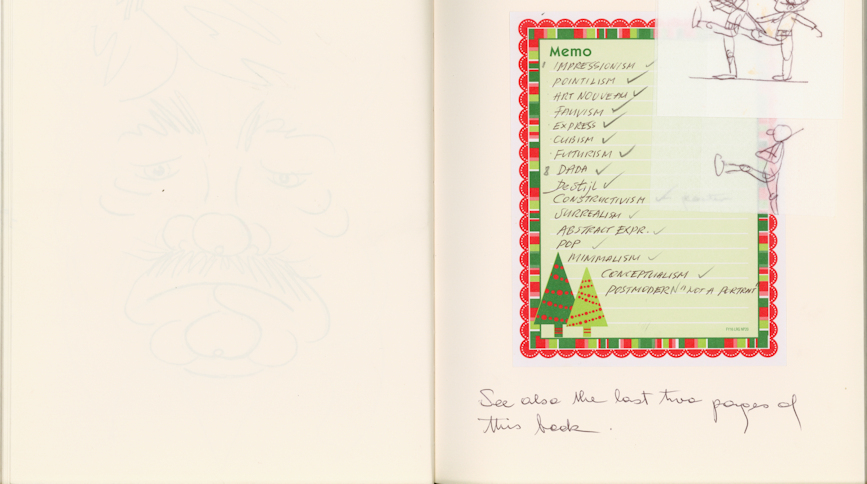 Memo
IMPRESSIONISM ✓
POINTILISM ✓
ART NOUVEAU ✓
FAUVISM ✓
EXPRESS ✓
CUBISM ✓
FUTURISM ✓
DADA ✓
DeStijl ✓
CONSTRUCTIVISM ✓
SURREALISM ✓
ABSTRACT EXPR. ✓
POP ✓
MINIMALISM ✓
CONCEPTUALISM ✓
POSTMODERN "NOT A PORTRAIT"
See also the last two pages of
this book.